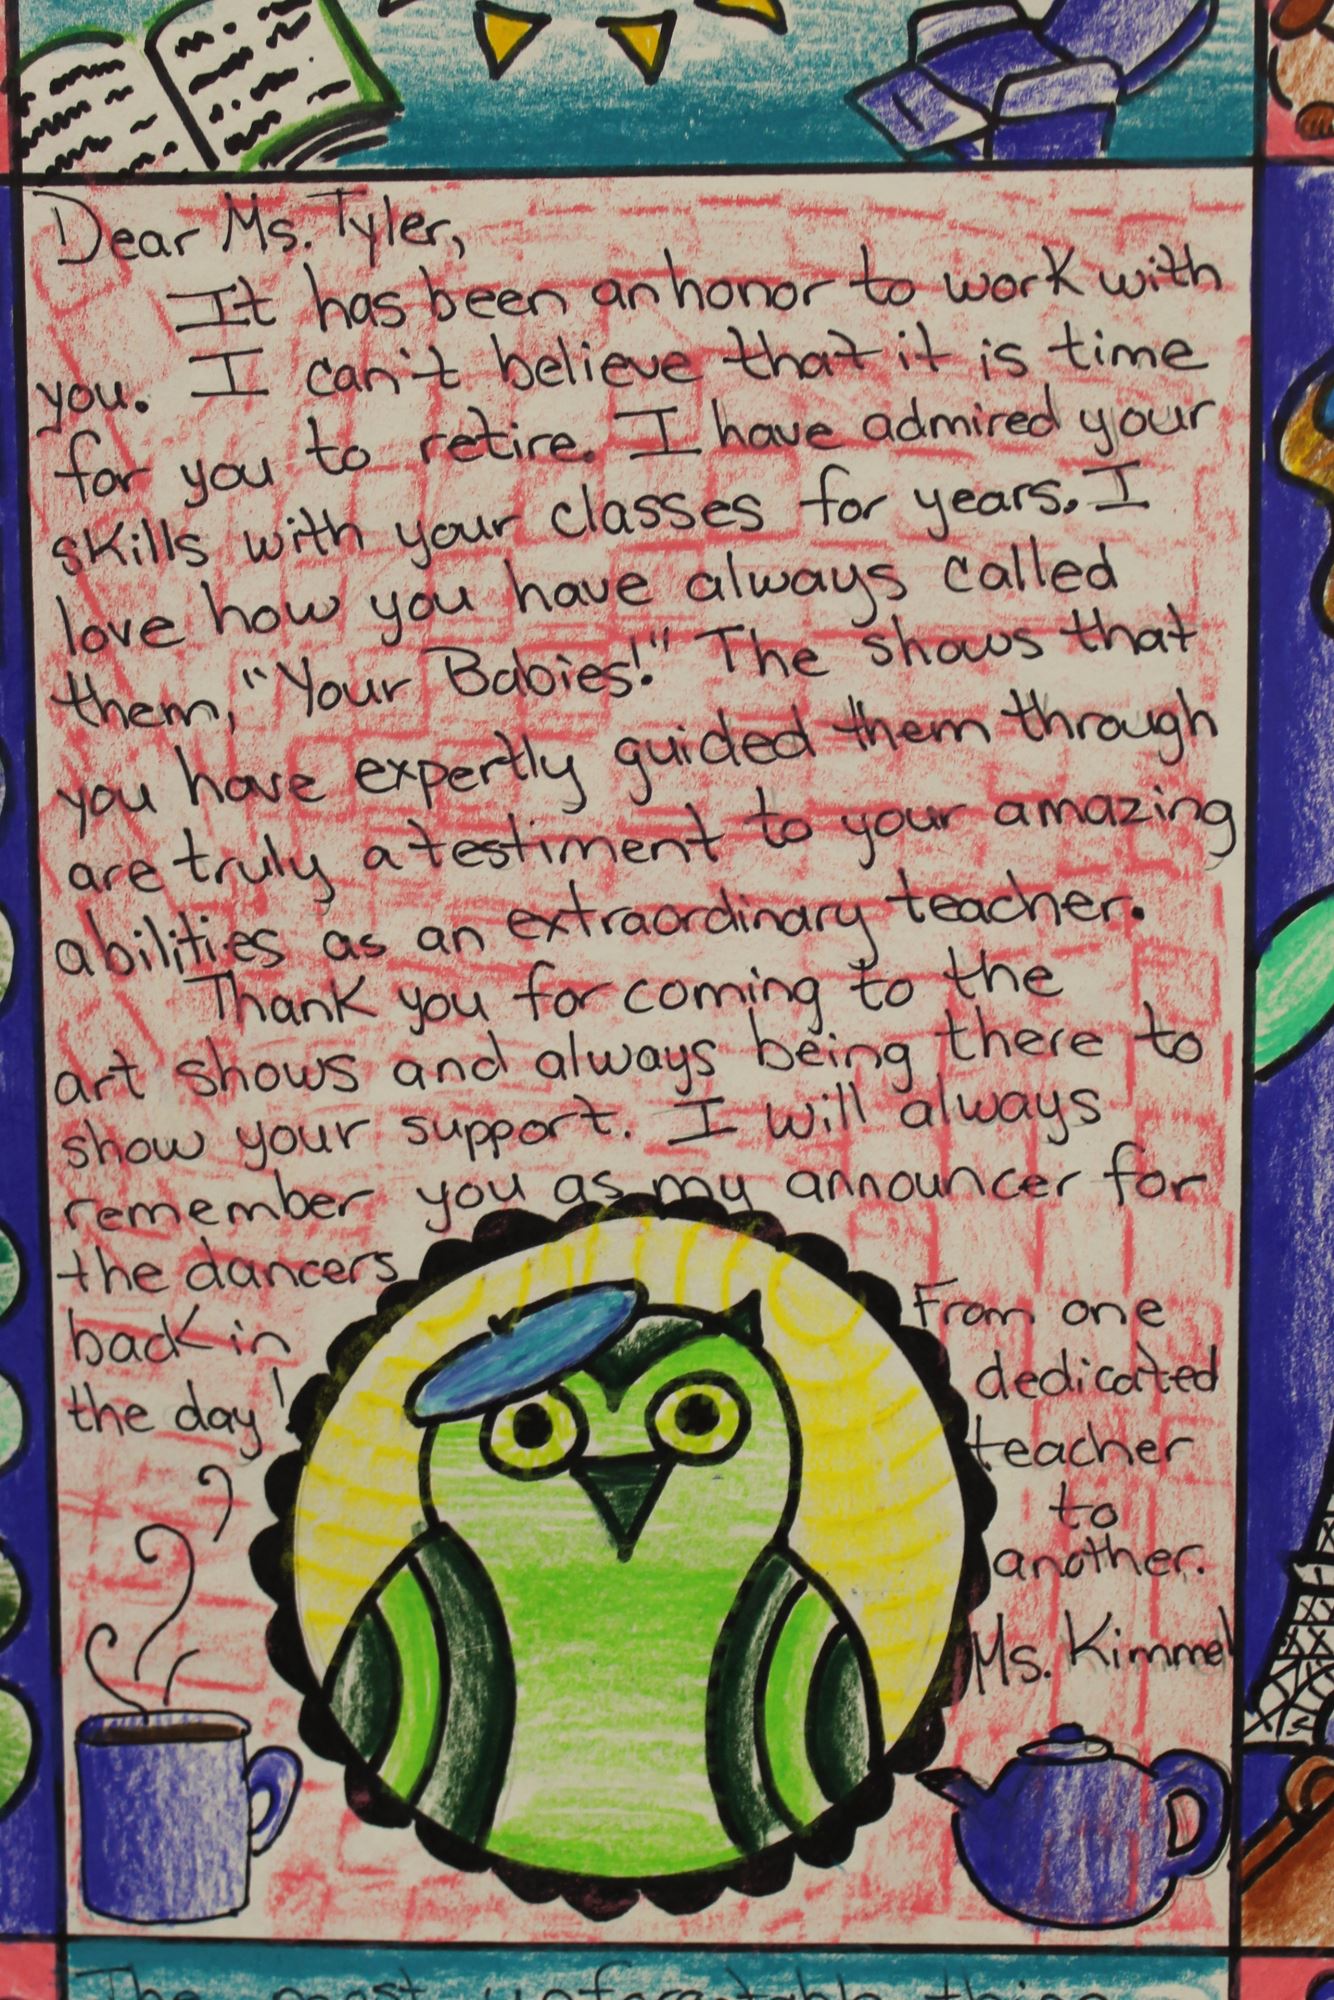 Dear Ms. Tyler,
It has been an honor to work with
you. I can't believe that it is time
for you to retire. I have admired your
skills with your classes for years. I
love how you have always called
them, "Your Babies!" The shows that
you have expertly guided them through
are truly a testiment to your amazing
abilities as an extraordinary teacher.
Thank you for coming to the
art shows and always being there to
show your support. I will always
remember you as my announcer for
the dancers
back in
the day!
From one
dedicated
teacher
to
another.
Ms. Kimmel
The most unforgettable thing